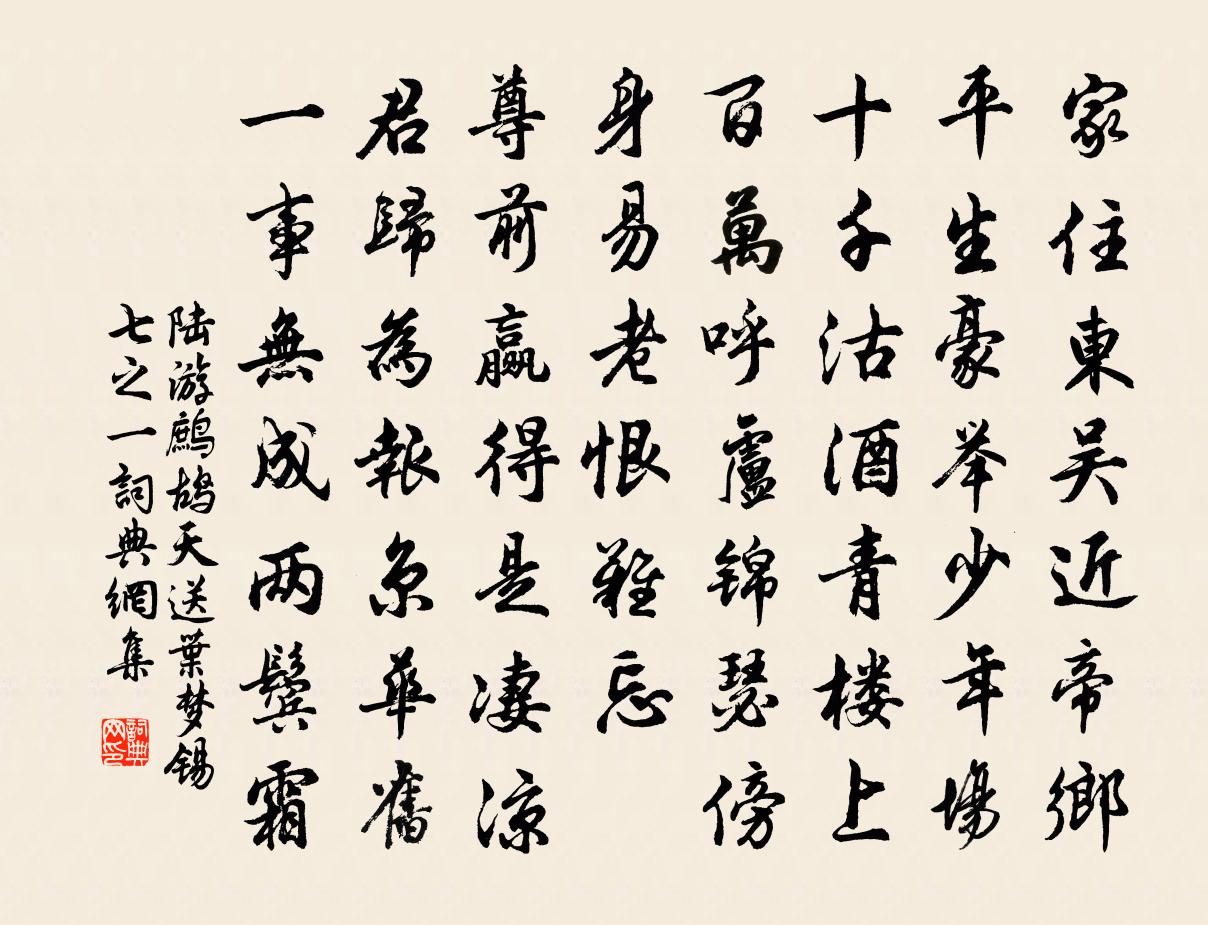 家住東吴近帝鄉
平生豪举少年場
十千沽酒青楼上
百萬呼盧锦瑟傍
身易老恨難忘
尊前贏得是凄涼
君歸為報京華舊
一事無成两鬓霜
陆游鹧鸪天送葉梦锡
七之一詞典網集
詞典
网印